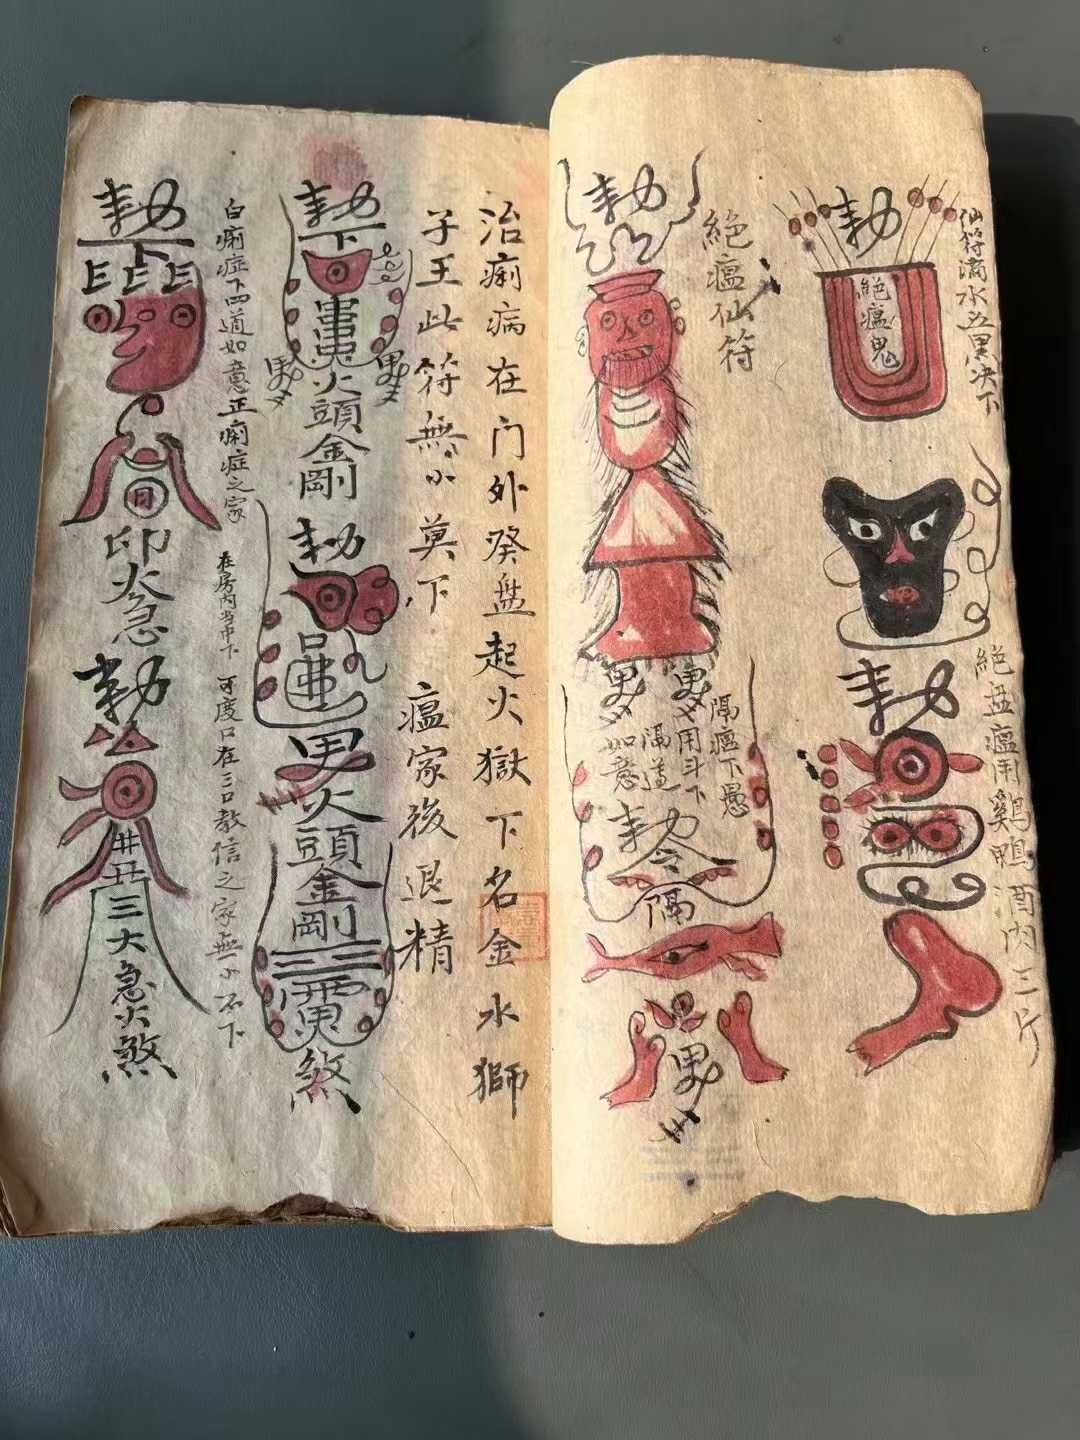 仙符滴水五黑决下
勅
絕瘟鬼
絕盅瘟用鷄鴨酒肉三斤
勅
絕瘟仙符
勅
隔瘟下愚
用斗下
隔道
如意
勅令
隔
治痢病在门外癸盘起火獄下名金水獅
子王此符無小莫下
瘟家後退精
勅下
火頭金剛
勅
火頭金剛
煞
白痢症下四道如意正痢症之家
在房内当中下
可度口在三口教信之家無小不下
勅下
印火急
勅
井丑三大急火煞